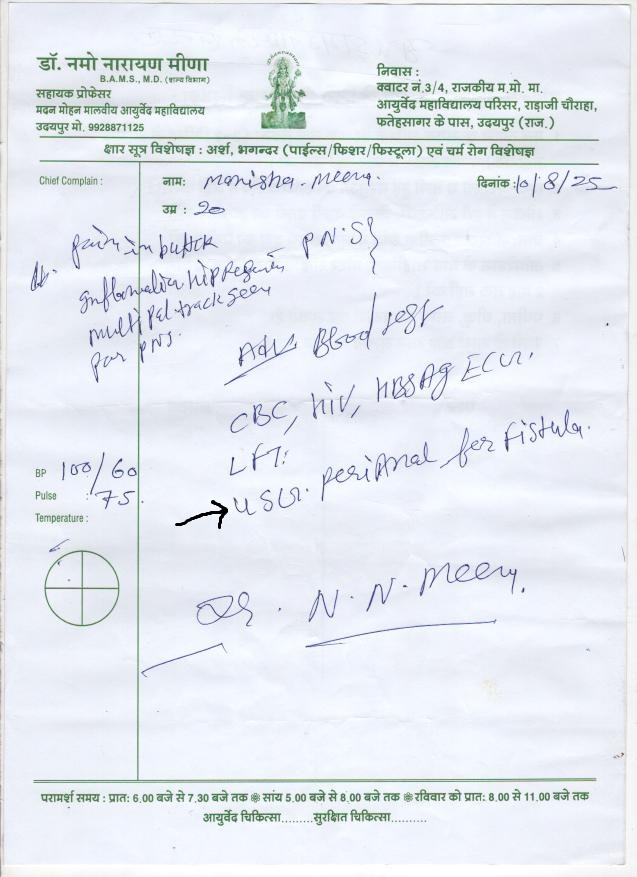 डॉ. नमो नारायण मीणा
B.A.M.S., M.D. (शल्य विभाग)
सहायक प्रोफेसर
मदन मोहन मालवीय आयुर्वेद महाविद्यालय
उदयपुर मो. 9928871125
निवास :
क्वाटर नं.3/4, राजकीय म.मो. मा.
आयुर्वेद महाविद्यालय परिसर, राड़ाजी चौराहा,
फतेहसागर के पास, उदयपुर (राज.)
क्षार सूत्र विशेषज्ञ : अर्श, भगन्दर (पाईल्स/फिशर/फिस्टूला) एवं चर्म रोग विशेषज्ञ
Chief Complain :
नाम: Manisha. Meena.
दिनांक :10/8/25
उम्र : 20
pain in buttck
hip region P.N.S}
multipel track seen
par PNS.
Adv Blood test
CBC, HIV, HBSAg
LFT:
USG. perianal for Fistula.
BP 100/60
Pulse : 75.
Temperature :
Dr. N. N. Meena.
परामर्श समय : प्रात: 6.00 बजे से 7.30 बजे तक ❁ सांय 5.00 बजे से 8.00 बजे तक ❁ रविवार को प्रात: 8.00 से 11.00 बजे तक
आयुर्वेद चिकित्सा.........सुरक्षित चिकित्सा..........